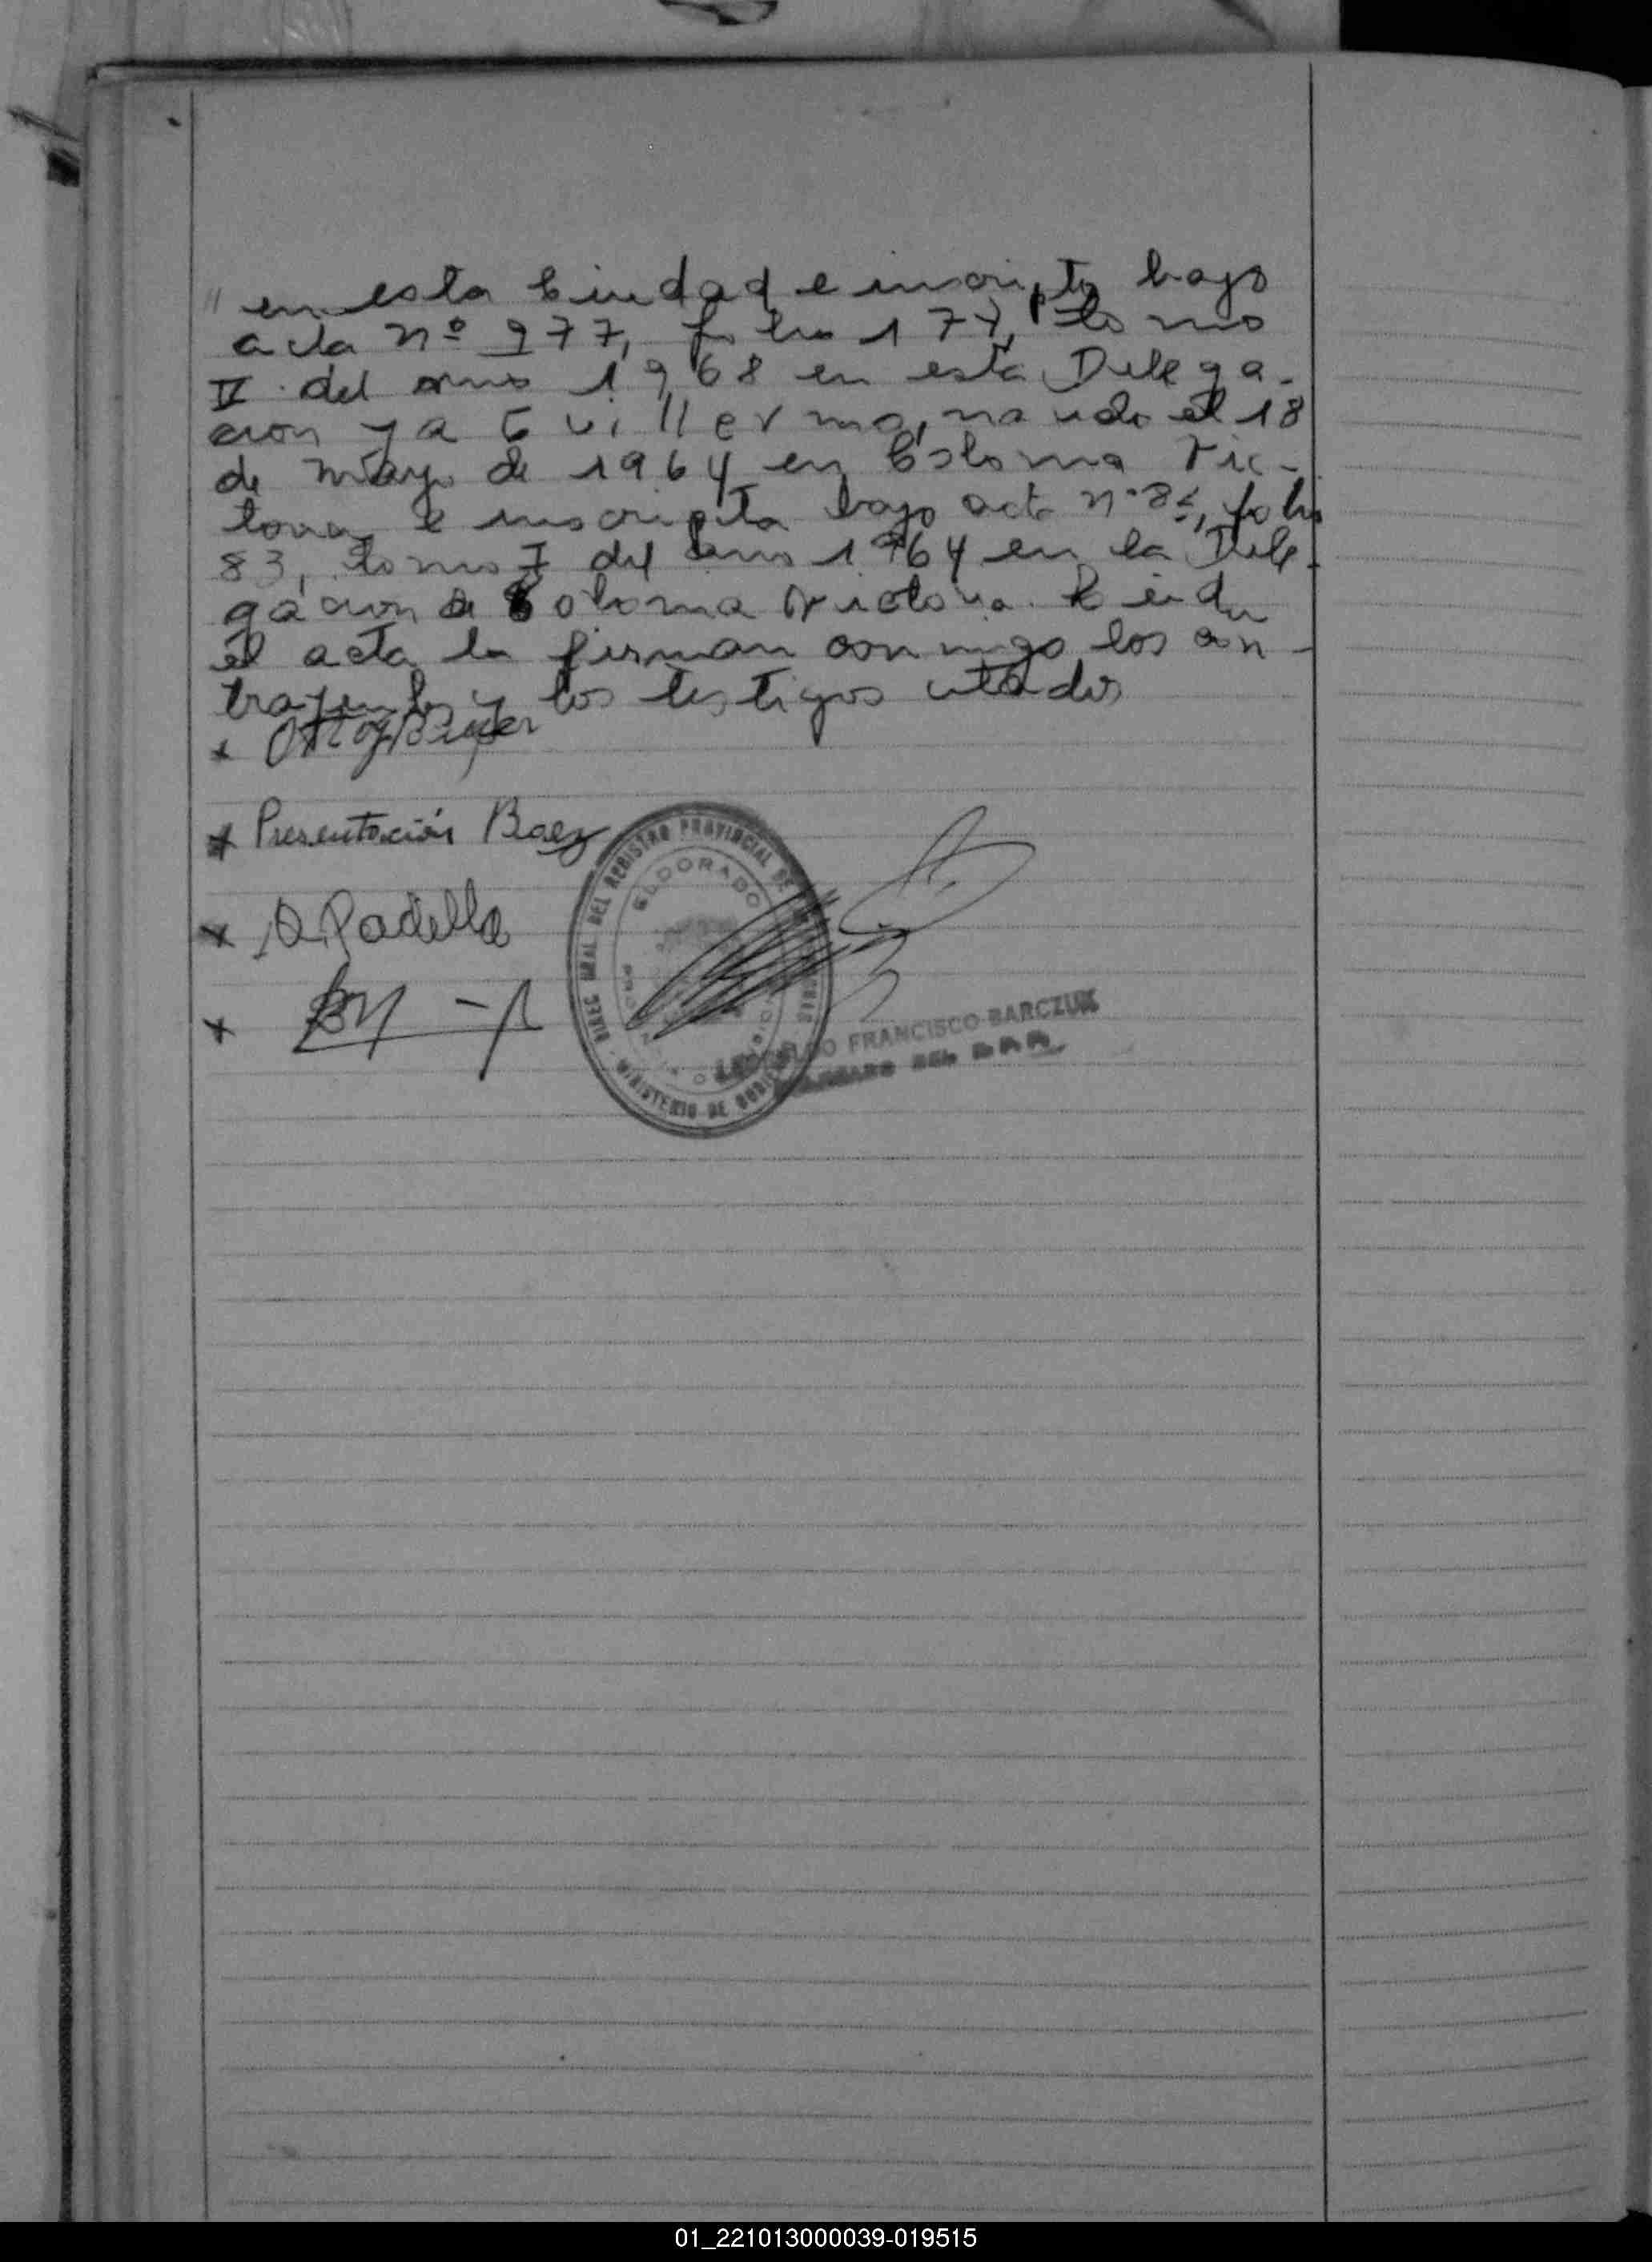 " en esta Ciudad e inscripto bajo
acta nº 977, folio 177, tomo
IV del año 1968 en esta Delega-
cion y a Guillermo, nacido el 18
de Mayo de 1964 en Colonia Vic-
toria e inscripta bajo acta nº 85, folio
83, tomo I del año 1964 en la Dele-
gacion de Colonia Victoria. Leida
el acta la firman conmigo los con-
trayentes y los testigos citados
x
x Presentación Baez
x A. Padilla
x
DIREC. GRAL. DEL REGISTRO PROVINCIAL DE
MINISTERIO DE GOBIERNO
ELDORADO
FRANCISCO BARCZUK
01_221013000039-019515